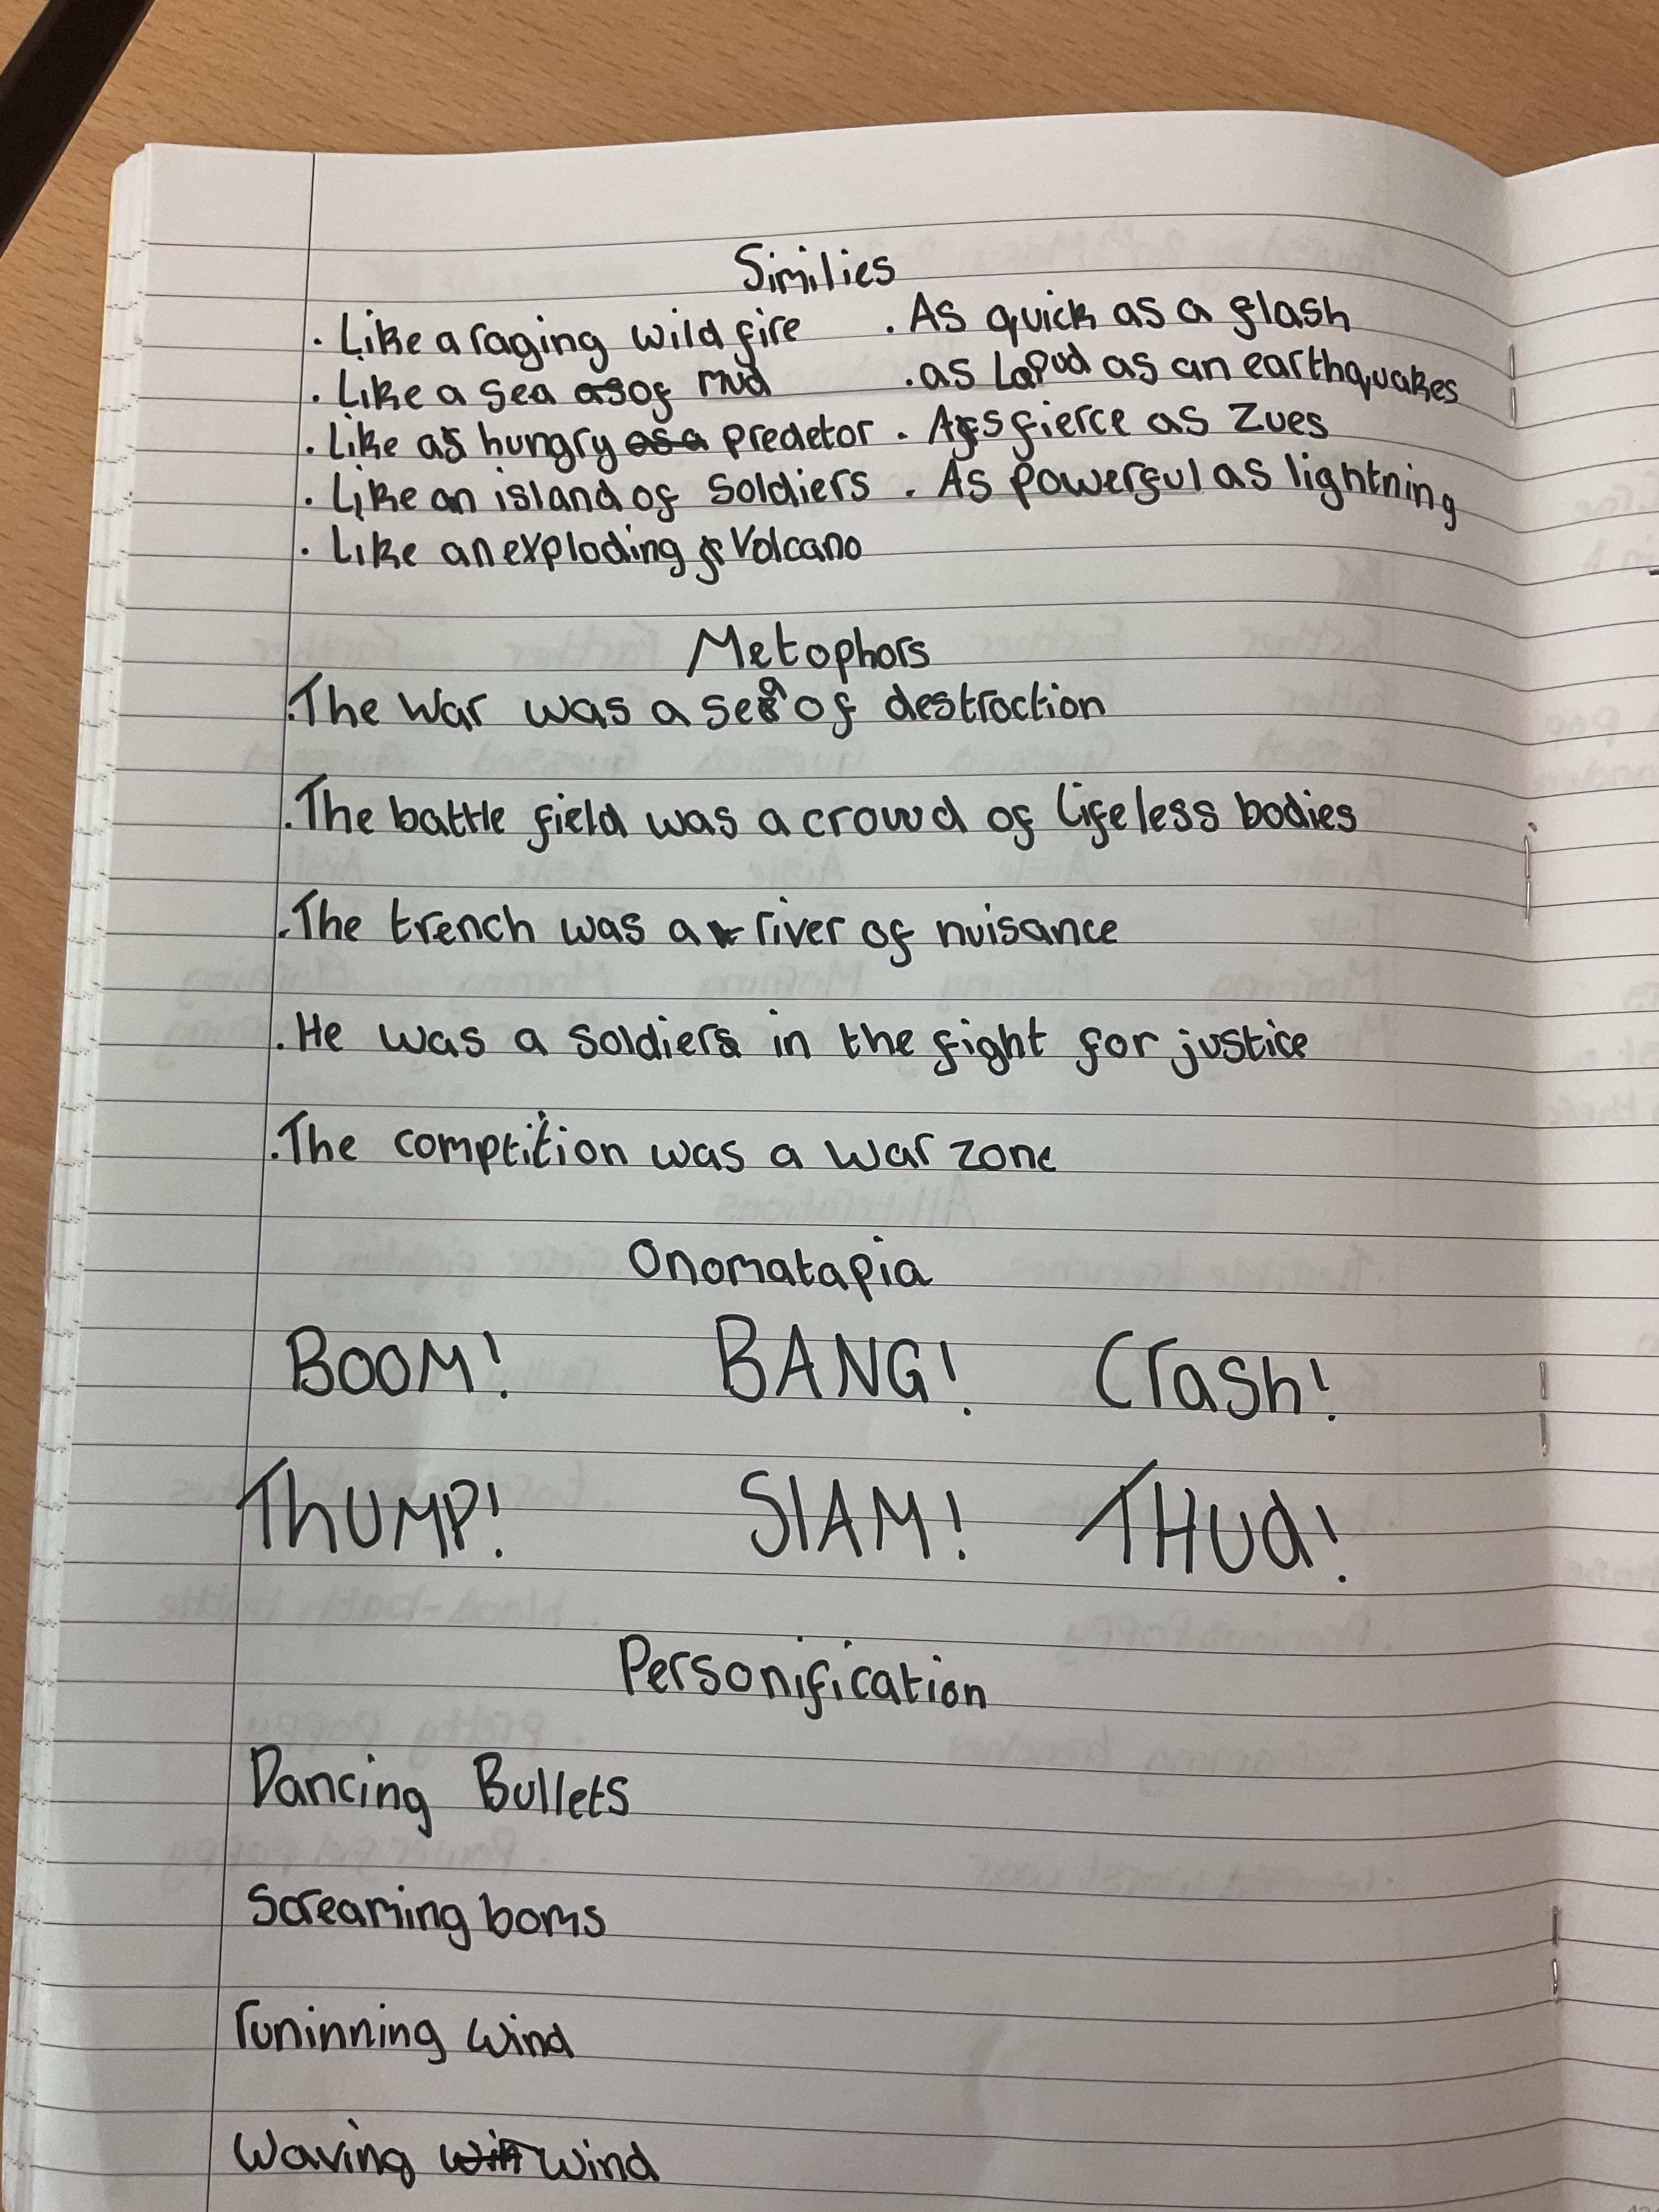 Similies
. Like a raging wild fire . As quick as a flash
. Like a sea of mud . as Loud as an earthquakes
. Like a hungry predetor . As fierce as Zues
. Like an island of soldiers . As powerful as lightning
. Like an exploding Volcano
Metophors
.The war was a sea of destroction
.The battle field was a crowd of lifeless bodies
.The trench was a river of nuisance
.He was a soldiers in the fight for justice
.The comptition was a war zone
Onomatapia
BOOM! BANG! Crash!
ThUMP! SlAM! THUd!
Personification
Dancing Bullets
Screaming boms
runinning wind
Waving wind